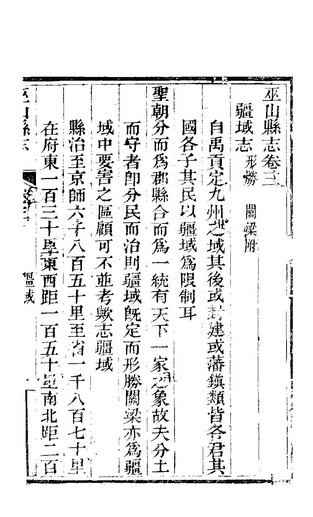 巫山縣志卷三
疆域志 形勝 關梁附
自禹貢定九州之域其後或封建或藩鎮類皆各君其
國各子其民以疆域爲限制耳
聖朝分而爲郡縣合而爲一統有天下一家之象故夫分土
而守者卽分民而治則疆域旣定而形勝關梁亦爲疆
域中要害之區顧可不並考歟志疆域
縣治至京師六千八百五十里至省一千八百七十里
在府東一百三十里東西距一百五十里南北距二百
巫山縣志
疆域